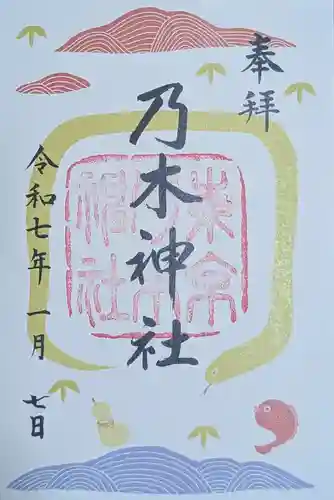 奉拝
乃木神社
令和七年一月七日